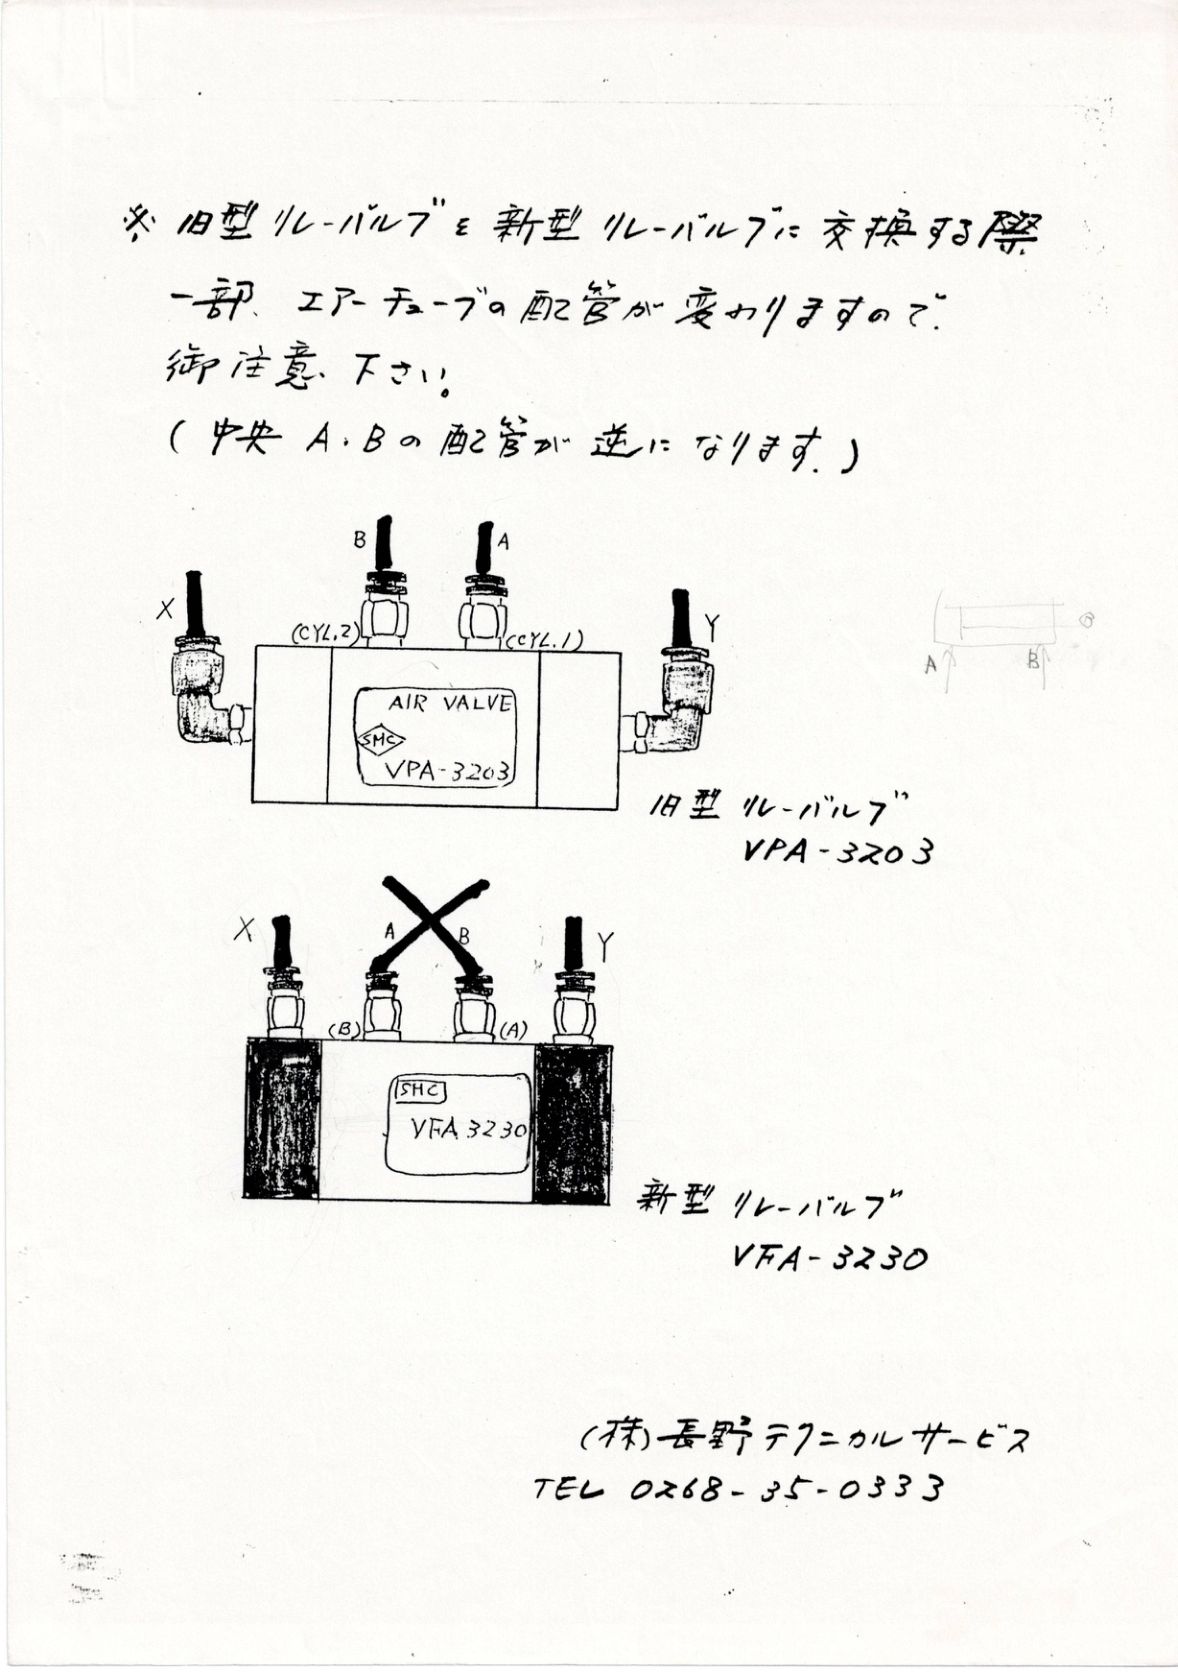 ※ 旧型 リレーバルブを 新型 リレーバルブに 交換する際
一部、エアーチューブの配管が変わりますので、
御注意、下さい。
(中央 A・Bの配管が逆になります。)
B A
X Y
(CYL.2) (CYL.1)
A B
AIR VALVE
SMC
VPA-3203
旧型 リレーバルブ
VPA-3203
X A B Y
(B) (A)
SMC
VFA 3230
新型 リレーバルブ
VFA-3230
(株)長野テクニカルサービス
TEL 0268-35-0333